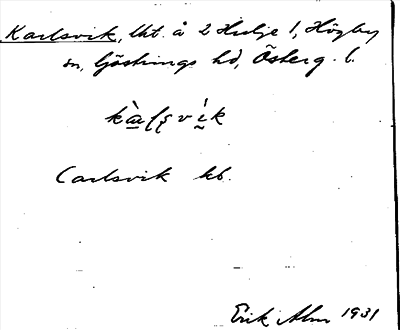 Karlsvik, Uht. å 2 Hulje 1, Högby
sn, Göstrings hd, Österg. l.
Carlsvik kb.
Erik Alm 1931